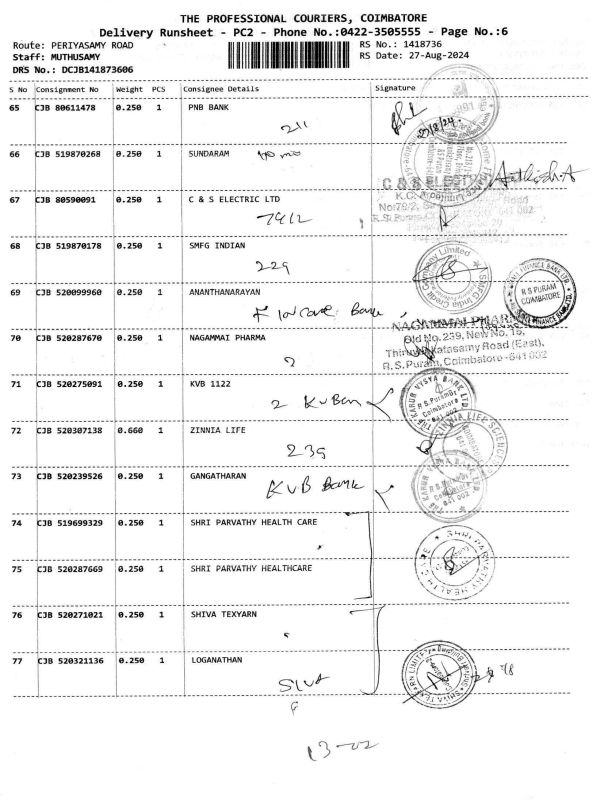 THE PROFESSIONAL COURIERS, COIMBATORE
Delivery Runsheet - PC2 - Phone No.:0422-3505555 - Page No.:6
Route: PERIYASAMY ROAD RS No.: 1418736
Staff: MUTHUSAMY RS Date: 27-Aug-2024
DRS No.: DCJB141873606
S No Consignment No Weight PCS Consignee Details Signature
65 CJB 80611478 0.250 1 PNB BANK
211 27/8/24
66 CJB 519870268 0.250 1 SUNDARAM
C & S ELECTRIC
67 CJB 80590091 0.250 1 C & S ELECTRIC LTD
79/2
68 CJB 519870178 0.250 1 SMFG INDIAN
229
R S PURAM
COIMBATORE
69 CJB 520099960 0.250 1 ANANTHANARAYAN
Bank
NAGAMMAI PHARMA
70 CJB 520287670 0.250 1 NAGAMMAI PHARMA
Old No.239, New No. 15,
Thiruvenkatasamy Road (East),
R.S.Puram, Coimbatore-641 002
2
71 CJB 520275091 0.250 1 KVB 1122
THE KARUR VYSYA BANK LTD
R.S.Puram Br.
Coimbatore
2 KVB
72 CJB 520307138 0.660 1 ZINNIA LIFE
ZINNIA LIFE SCIENCES
239
73 CJB 520239526 0.250 1 GANGATHARAN
KVB Bank
THE KARUR VYSYA BANK LTD
641 002
74 CJB 519699329 0.250 1 SHRI PARVATHY HEALTH CARE
SHRI PARVATHY HEALTH CARE
75 CJB 520287669 0.250 1 SHRI PARVATHY HEALTHCARE
76 CJB 520271021 0.250 1 SHIVA TEXYARN
77 CJB 520321136 0.250 1 LOGANATHAN
SHIVA TEXYARN LIMITED
Siva
13-02